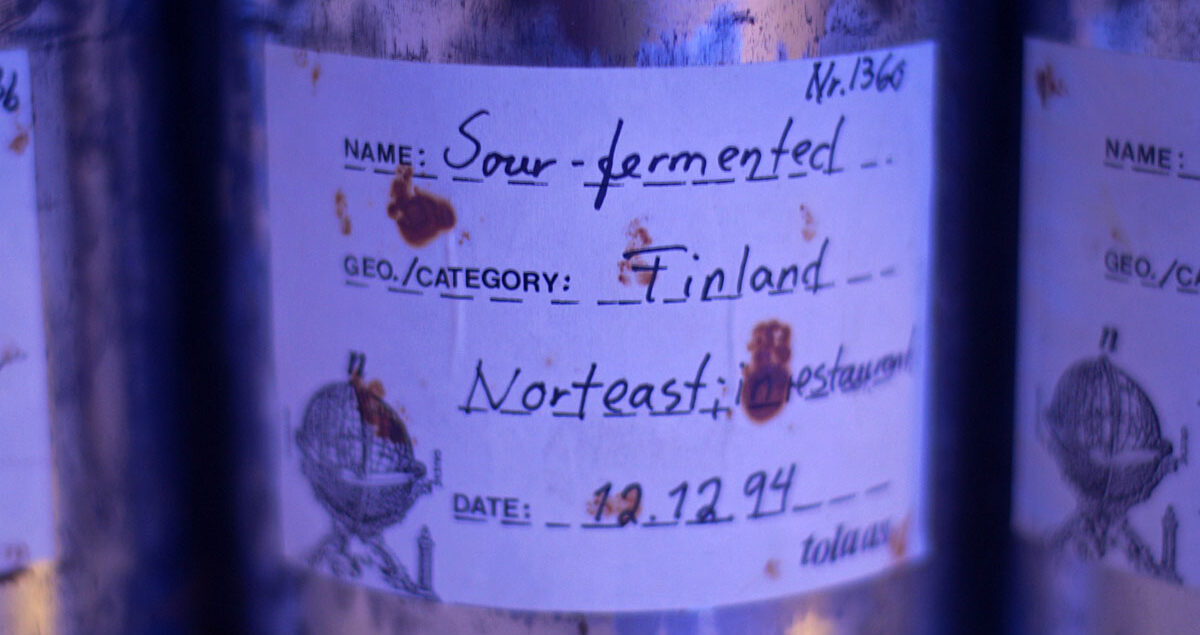 Nr.1360
NAME: Sour-fermented
GEO./CATEGORY: Finland
Norteast; in restaurant
n
DATE: 12.12.94
tolaas
36
NAME:
GEO./CA
n